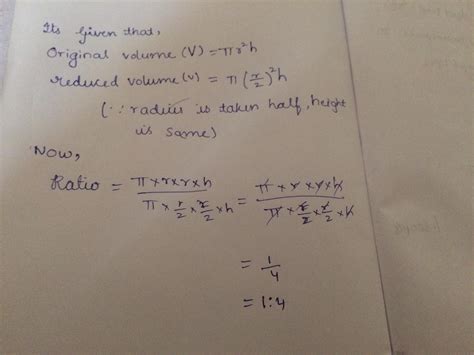 Its given that,
Original volume (V) = πr²h
reduced volume (v) = π(r/2)²h
(∵ radius is taken half, height
is same)
Now,
Ratio = π×r×r×h / π×r/2×r/2×h = π×r×r×h / π×r/2×r/2×h
= 1/4
= 1:4